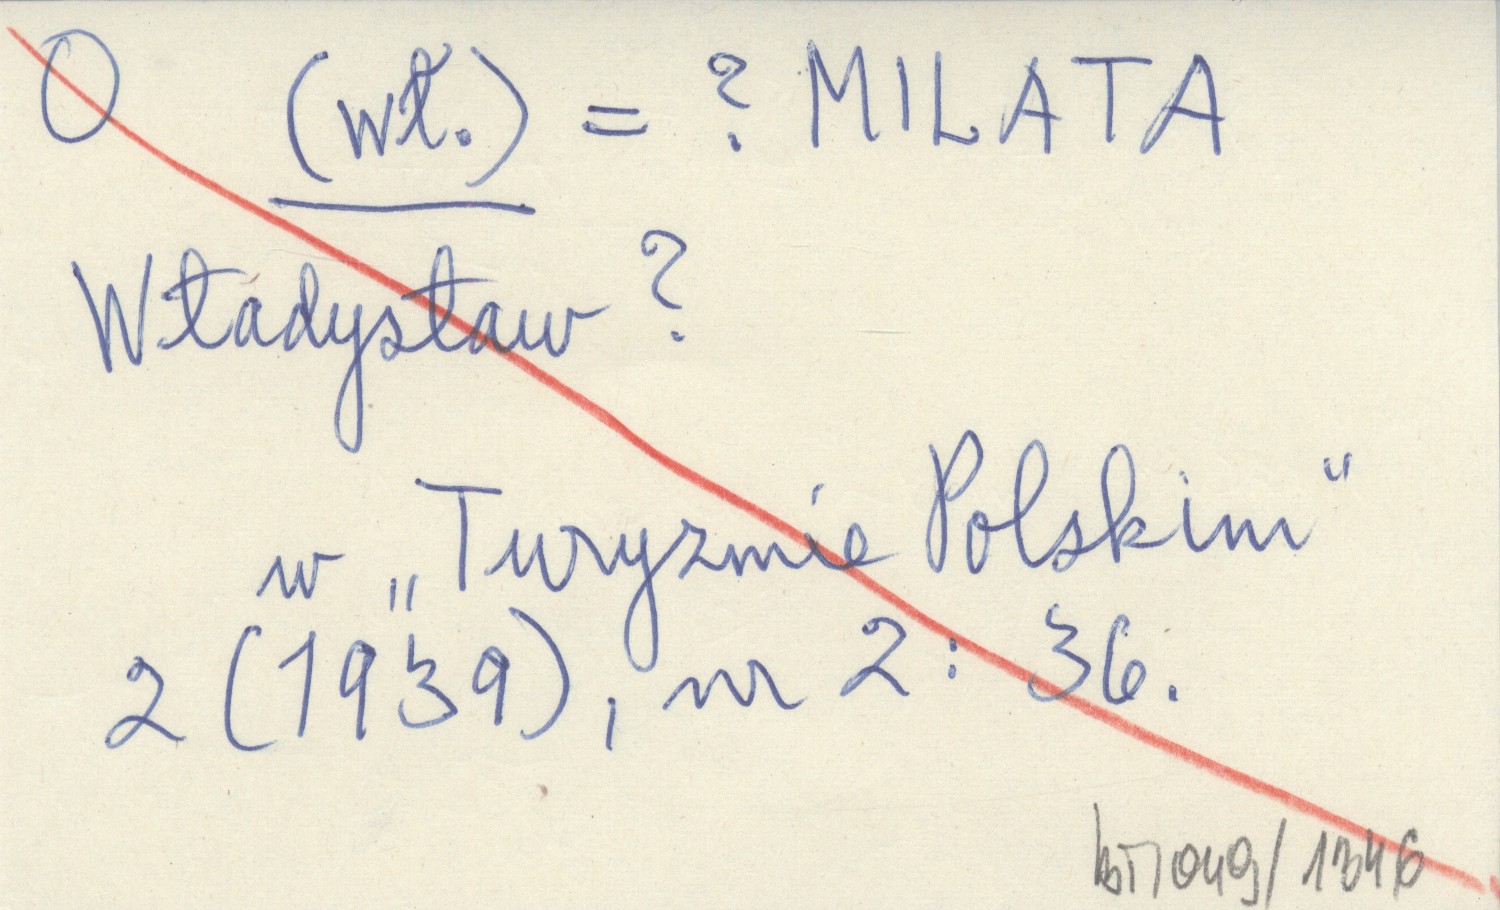 O (wł.) = ? MILATA
Władysław ?
w „Turyzmie Polskim"
2 (1939), nr 2 : 36.
1346